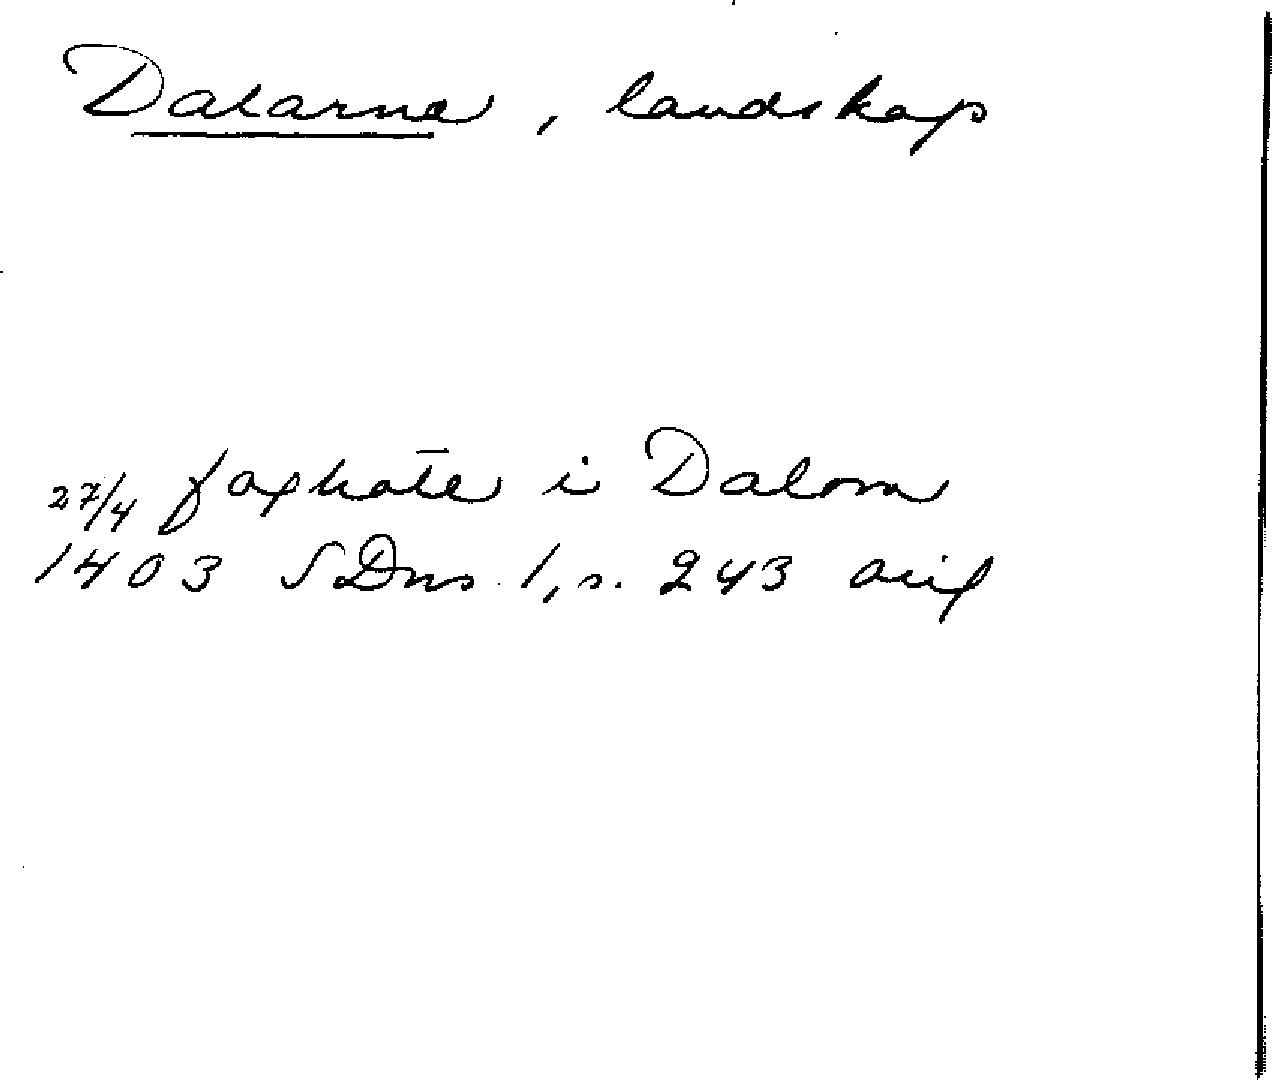 Dalarne, landskap
27/4 foghate i Dalom
1403 SDns 1, s. 243 avif